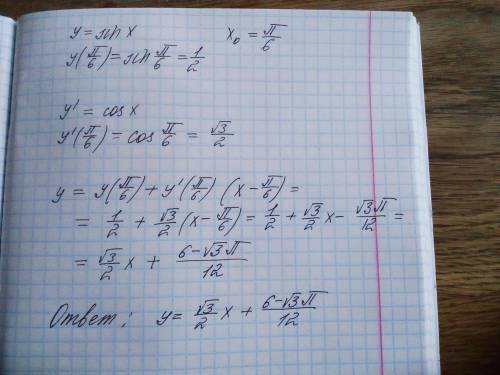 y = sin x x₀ = π/6
y(π/6) = sin π/6 = 1/2
y' = cos x
y'(π/6) = cos π/6 = √3/2
y = y(π/6) + y'(π/6) (x - π/6) =
= 1/2 + √3/2 (x - π/6) = 1/2 + √3/2 x - √3π/12 =
= √3/2 x + (6-√3π)/12
Ответ: y = √3/2 x + (6-√3π)/12